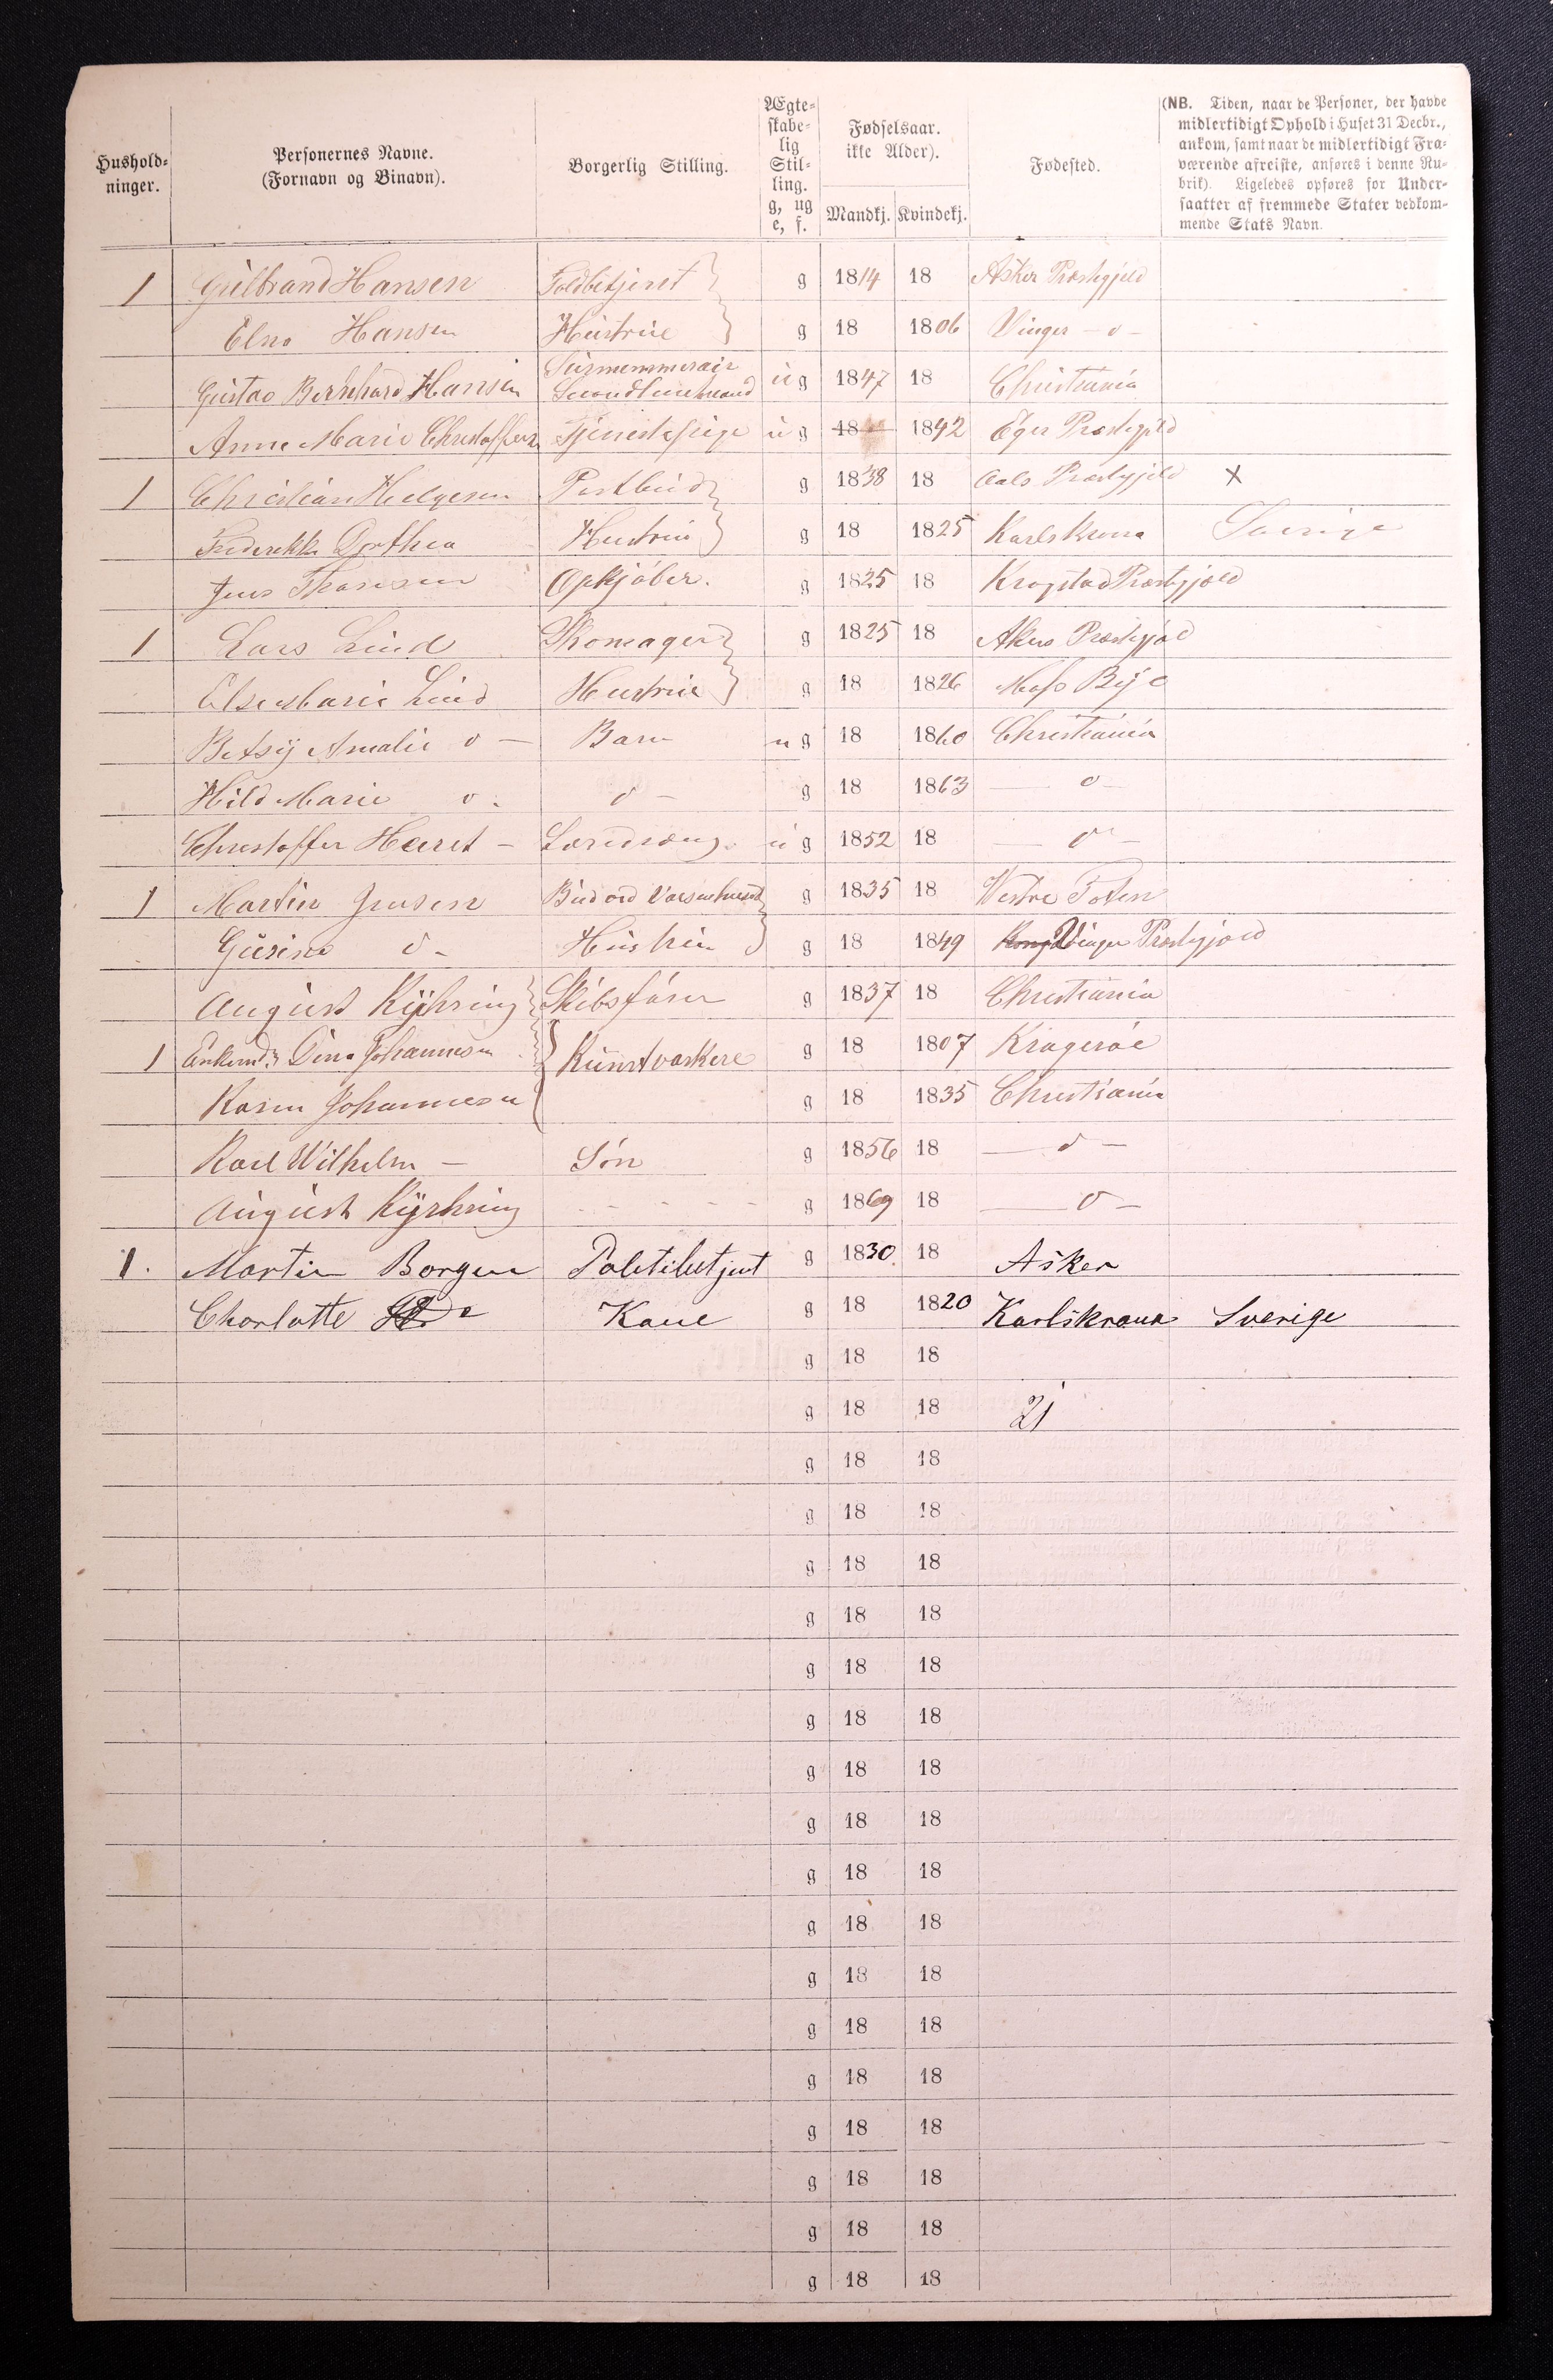 Hushold-
ninger.
Personernes Navne.
(Fornavn og Binavn).
Borgerlig Stilling.
Ægte-
skabe-
lig
Stil-
ling.
g, ug
e, f.
Fødselsaar.
ikke Alder).
Mandkj. Kvindekj.
Fødested.
(NB. Tiden, naar de Personer, der havde
midlertidigt Ophold i Huset 31 Decbr.,
ankom, samt naar de midlertidigt Fra-
værende afreiste, anføres i denne Ru-
brik). Ligeledes opføres for Under-
saatter af fremmede Stater vedkom-
mende Stats Navn.
1 Gulbrand Hansen Toldbetjent g 1814 18 Asker Præstegjeld
Elna Hansen Hustrue g 18 1806 Vinger - o -
Gustav Bernhard Hansen Secondlieutenand ug 1847 18 Christiania
Anne Marie Tjenestepige ug 18 1842 Eger Præstegjeld
1 Christian Helgesen Postbud g 1838 18 Aals Præstegjeld X
Frederikke Dorthea Hustrue g 18 1825 Karlskrona Sverige
Jens Opkjøber. g 1825 18 Krogstad Præstegjeld
1 Lars Lind Skomager g 1825 18 Akers Præstegjeld
Else Marie Lind Hustrue g 18 1826 Moss Bye
Betsy Amalie o - Barn ug 18 1860 Christiania
Hild Marie o - o - g 18 1863 - o -
Christoffer - ug 1852 18 - o -
1 Martin Jensen Bud g 1835 18 Vestre Toten
Gurine o - Hustru g 18 1849 Vinger Præstegjeld
August Kyhring Skibsfører g 1837 18 Christiania
1 Dina Johannesen Kunstvaskere g 18 1807 Kragerøe
Karen Johannesen g 18 1835 Christiania
Karl Wilhelm - Søn g 1856 18 - o -
August Kyhring - - - - g 1869 18 - o -
1. Martin Borgen Politibetjent g 1830. 18 Asker
Charlotte Kone g 18 1820 Karlskrona Sverige
g 18 18
g 18 18 21
g 18 18
g 18 18
g 18 18
g 18 18
g 18 18
g 18 18
g 18 18
g 18 18
g 18 18
g 18 18
g 18 18
g 18 18
g 18 18
g 18 18
g 18 18
g 18 18
g 18 18